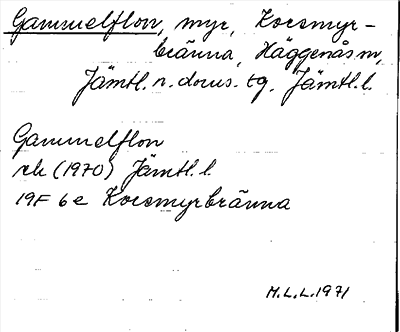 Gammelflon, myr, Korsmyr-
bränna, Häggenås sn,
Jämtl. n. doms. tg. Jämtl. l.
Gammelflon
rek (1970) Jämtl. l.
19F 6e Korsmyrbränna
M.L.L. 1971